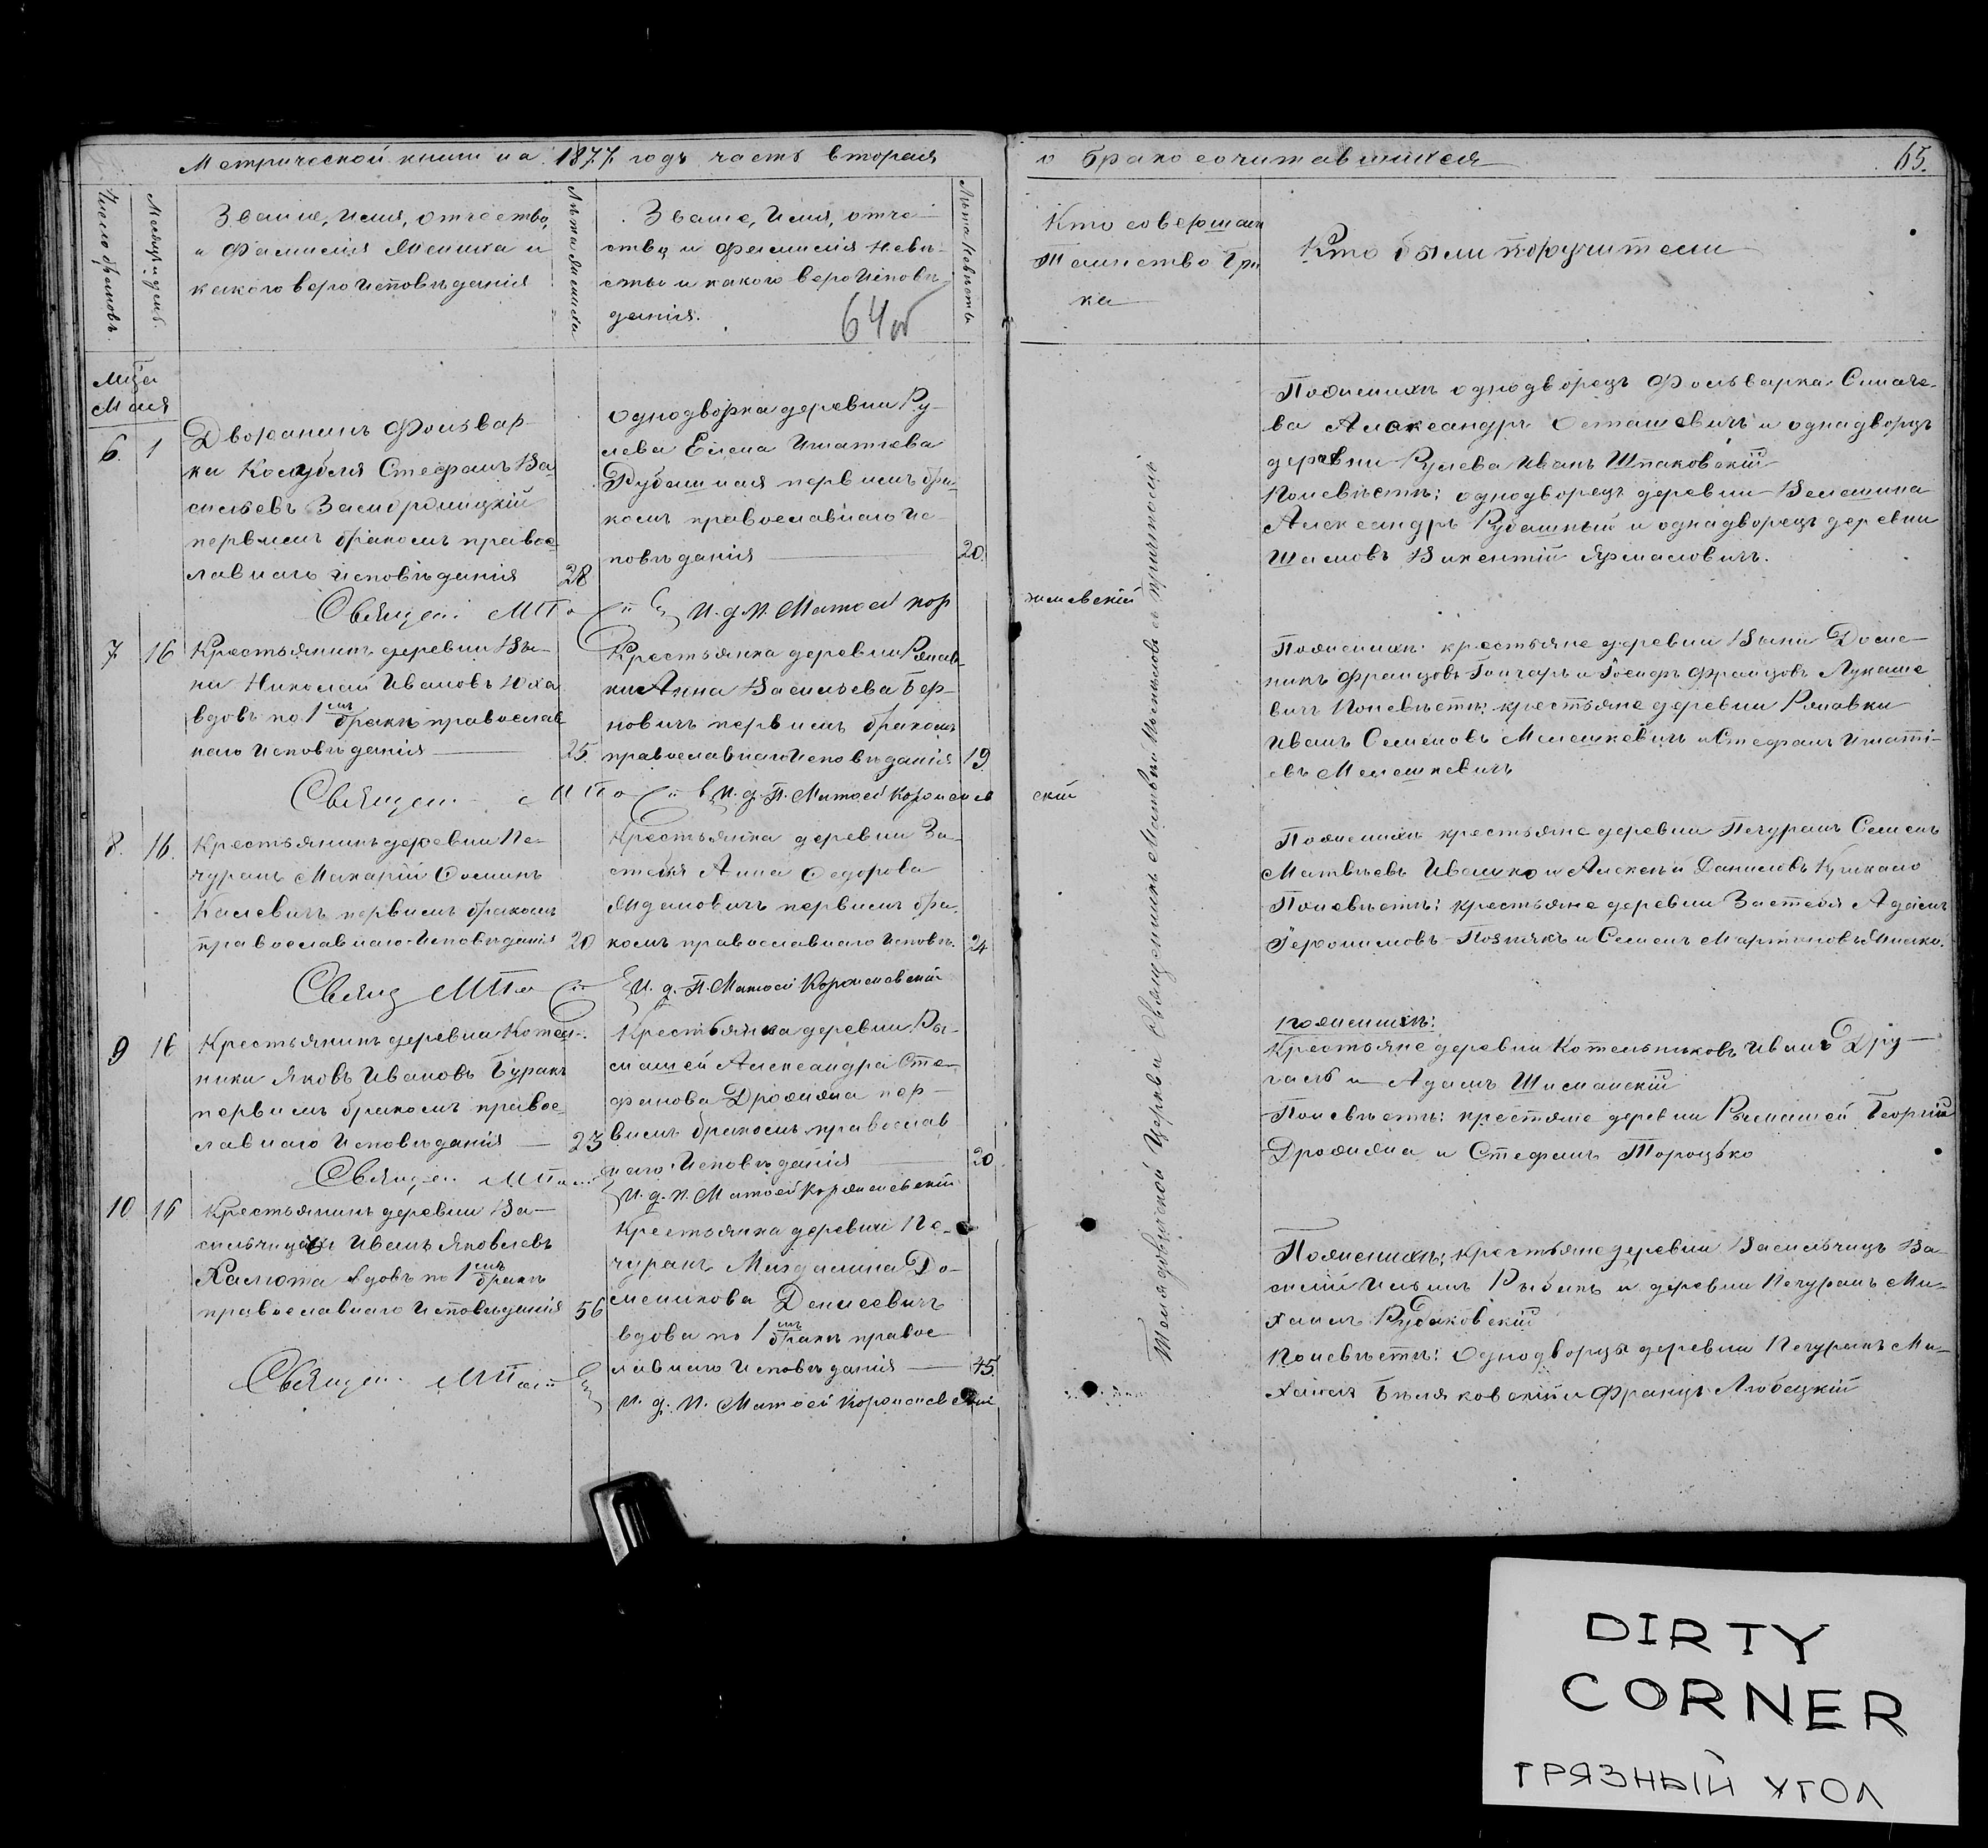 Метрической книги на 1877 годъ часть вторая
о бракосочитавшихся
65.
Число браковъ.
Мѣсяцъ и день
Званіе, имя, отчество,
и фамилія жениха и
какого вероисповѣданія
Лѣта жениха
Званіе, имя, отче-
ство и фамилія невѣ-
сты и какого вероисповѣ-
данія.
64об
Лѣта невѣсты
Кто совершалъ
Таинство бра
ка
Кто были поручители
Мца
Мая
6. 1
Дворянинъ фольвар-
ка Стефанъ Ва-
сильевъ
первымъ бракомъ правос-
лавнаго исповѣданія 28
Однодворка деревни Ру-
лева Елена Игнатіева
Рубашная первымъ бра-
комъ православнаго ис-
повѣданія 20.
По женихѣ однодворецъ фольварка Сипаче-
ва Александръ Осташевичъ и однадворецъ
деревни Рулева Иванъ Шпаковскій
По невѣстѣ: однодворецъ деревни
Александръ Рубашный и однадворецъ деревни
Викентій Ярмаловичъ.
Священ. И. д. П. Матѳей Кор
жолевскій
7 16
Крестьянинъ деревни Вы-
ни Николай Ивановъ Юха
вдовъ по 1мъ бракѣ православ
наго исповѣданія 25.
Крестьянка деревни
Анна Васильева Бер-
новичъ первымъ бракомъ
православнаго исповѣданія 19.
По женихѣ: крестьяне деревни Выни Доме-
никъ Францовъ Гончаръ и Іосифъ Францовъ Лукаше
вичъ По невѣстѣ: крестьяне деревни
Иванъ Семеновъ Мелешкевичъ и Стефанъ Игнаті-
евъ Мелешкевичъ
Священ. И. д. П. Матѳей
скій
8. 16.
Крестьянинъ деревни Пе-
чуранъ Макарій Осипъ
первымъ бракомъ
православнаго исповѣданія 20
Крестьянка деревни За-
стебя Анна Ѳедорова
первымъ бра-
комъ православнаго исповѣ. 24
По женихѣ крестьяне деревни Печуранъ Семенъ
Матвѣевъ Ивашко и Алексѣй Даниловъ
По невѣстѣ: крестьяне деревни Застебя Адамъ
Геронимовъ Познякъ и Семенъ Мартиновъ
Свящ И. д. П. Матѳей
9 16
Крестьянинъ деревни Котель-
ники Яковъ Ивановъ Буракъ
первымъ бракомъ правос-
лавнаго исповѣданія 23
Крестьянка деревни Ры-
машей Александра Сте-
фанова Дрожжа пер-
вымъ бракомъ православ
наго исповѣданія 20
По женихѣ:
Крестьяне деревни Котельниковъ Иванъ Дру-
галь и Адамъ Шиманскій
По невѣстѣ: крестяне деревни Рымашей Георгій
Дрожжа и Стефанъ Тороцько
Священ. И. д. П. Матѳей
10 16
Крестьянинъ деревни Ва-
Иванъ Яковлевъ
Халюта вдовъ по 1мъ бракѣ
православнаго исповѣданія 56
Крестьянка деревни Пе-
чуранъ Магдалина До-
меникова Денисевичъ
вдова по 1мъ бракѣ правос-
лавнаго исповѣданія 45.
По женихѣ: крестьяне деревни Васильчицъ Ва-
силій Ильинъ и деревни Печуранъ Ми-
хаилъ Рудаковскій
По невѣстѣ: Однодворцы деревни Печуранъ Ми-
хаилъ Бѣляковскій и Францъ Любецкій
Священ. И. д. П. Матѳей
Церкви Священникъ Матвѣй съ причтомъ
DIRTY
CORNER
ГРЯЗНЫЙ УГОЛ